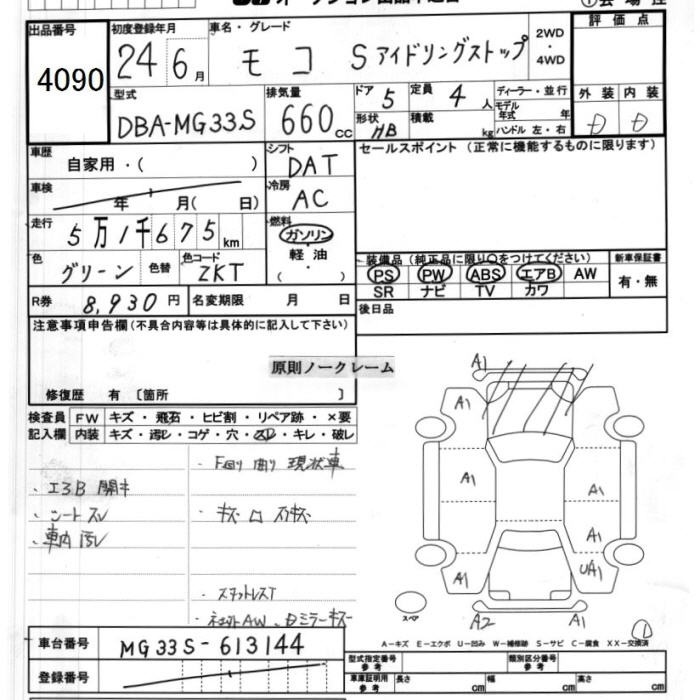 出品番号
4090
初度登録年月
24 6月
車名・グレード
モコ Sアイドリングストップ
2WD
・4WD
評価点
外装 内装
D D
型式
DBA-MG33S
排気量
660cc
ドア
5
定員
4人
形状
HB
積載
kg
ディーラー・並行
モデル年式 年
ハンドル 左・右
車歴
自家用・( )
シフト
DAT
セールスポイント (正常に機能するものに限ります)
車検
年 月( 日)
冷房
AC
走行
5万1千675km
燃料
ガソリン
軽油
( ・ )
色
グリーン
色替
色コード
ZKT
装備品 (純正品に限り○をつけてください)
PS PW ABS エアB AW
SR ナビ TV カワ
新車保証書
有・無
R券
8,930円
名変期限 月 日
後日品
注意事項申告欄(不具合内容等は具体的に記入して下さい)
原則ノークレーム
修復歴 有〔箇所 〕
検査員
記入欄
FW キズ・飛石・ヒビ割・リペア跡・×要
内装 キズ・汚レ・コゲ・穴・スレ・キレ・破レ
・F回り 曲り 現状車
・エアB 開キ
・シートスレ
・車内汚レ
・スタットレスT
車台番号
MG33S-613144
登録番号
A1
A1
A1
A1
A1
A1
UA1
A2
A1
スペア
1
A-キズ E-エクボ U-凹み W-補修跡 S-サビ C-腐食 XX-交換済
型式指定番号
参考
類別区分番号
参考
車庫証明用
参考
長さ cm
幅 cm
高さ cm